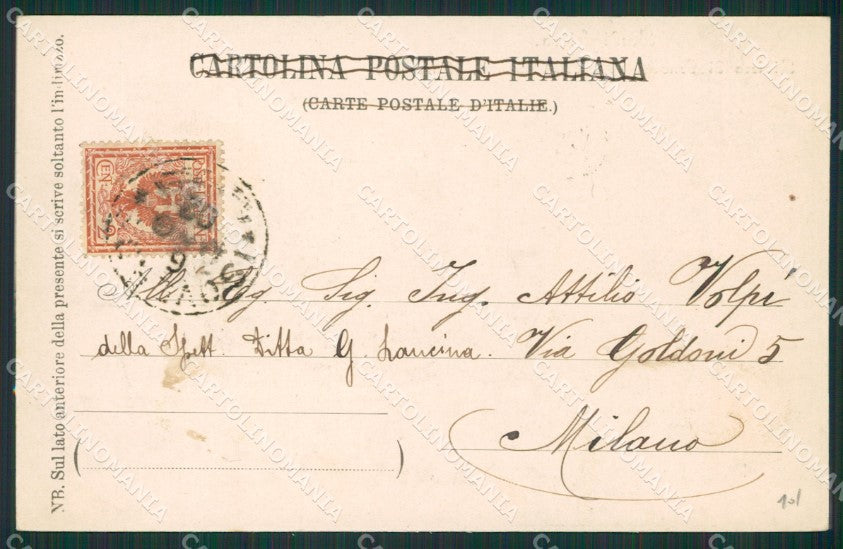 CARTOLINA POSTALE ITALIANA
(CARTE POSTALE D'ITALIE.)
NB. Sul lato anteriore della presente si scrive soltanto l'indirizzo.
All' Eg. Sig. Ing. Attilio Volpi
della Spett. Ditta G. Lancina. Via Goldoni 5
Milano
101
CARTOLINOMANIA